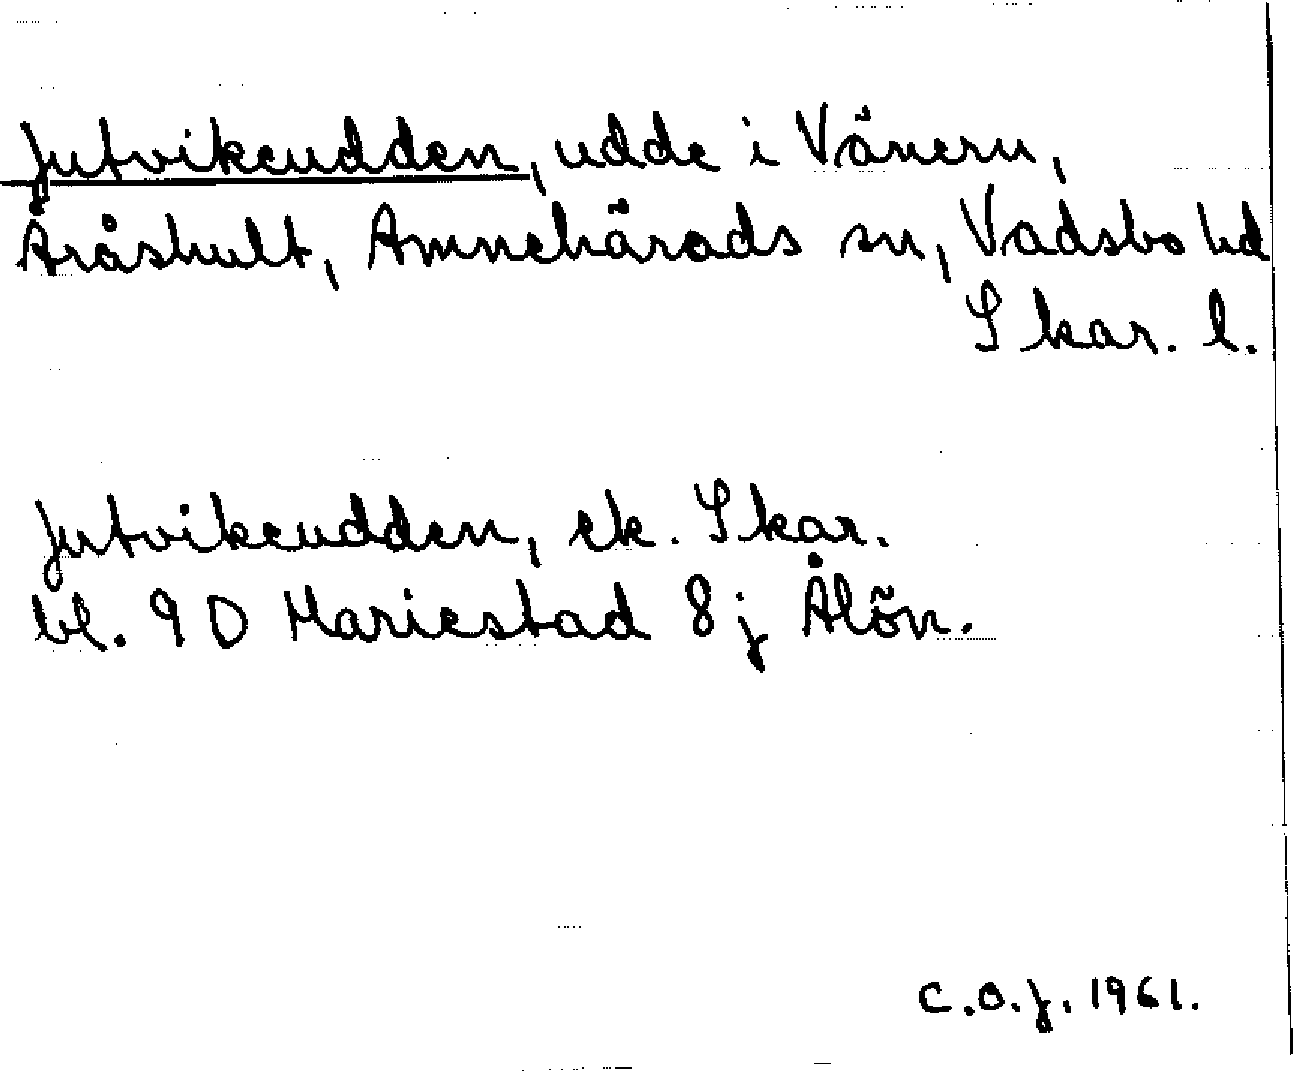 Jutvikeudden, udde i Vänern,
Åråshult, Amnehärads sn, Vadsbo hd
Skar. l.
Jutvikeudden, ek. Skar.
bl. 9D Mariestad 8j Ålön.
C.O.J. 1961.